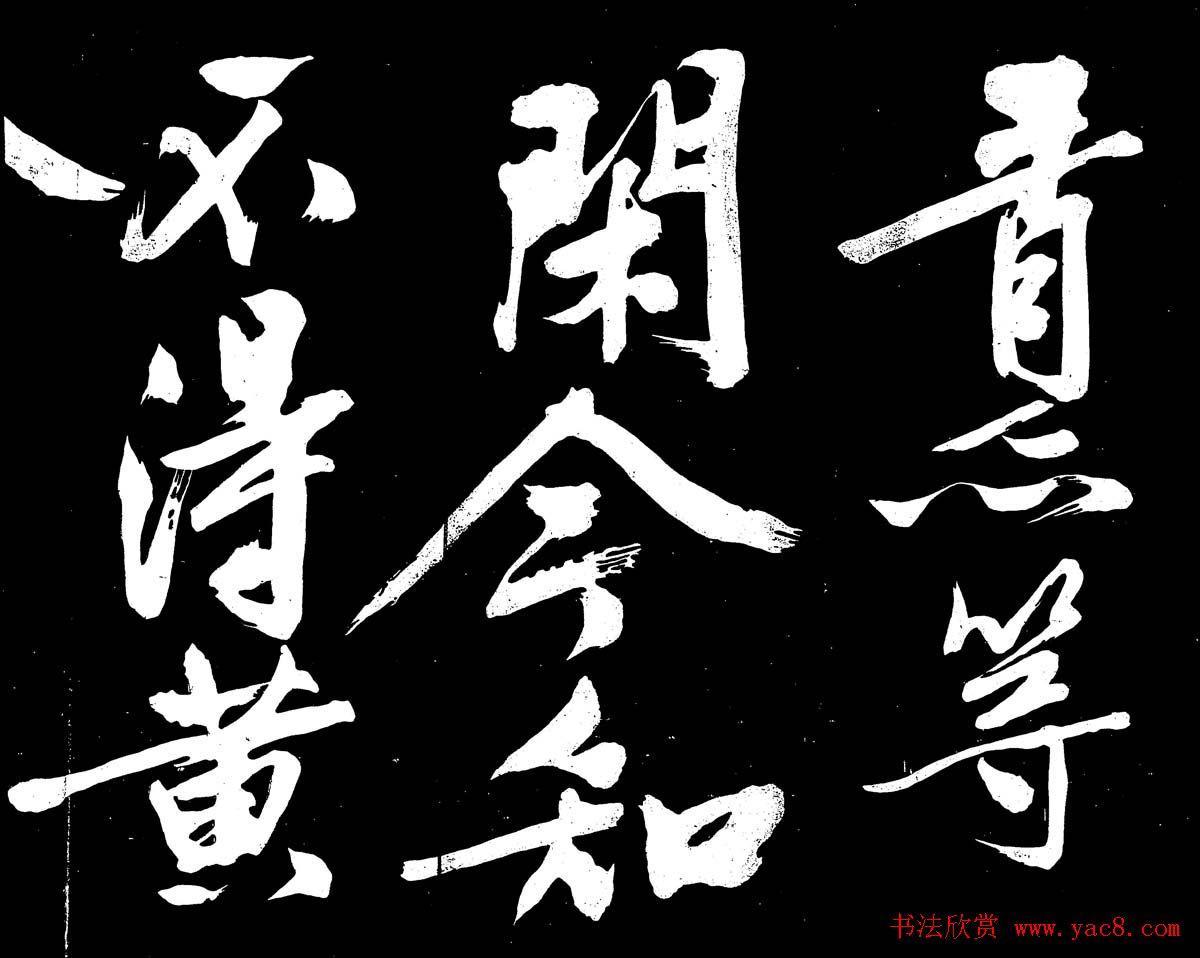 青亦等
閑今知
必得黄
书法欣赏 www.yac8.com